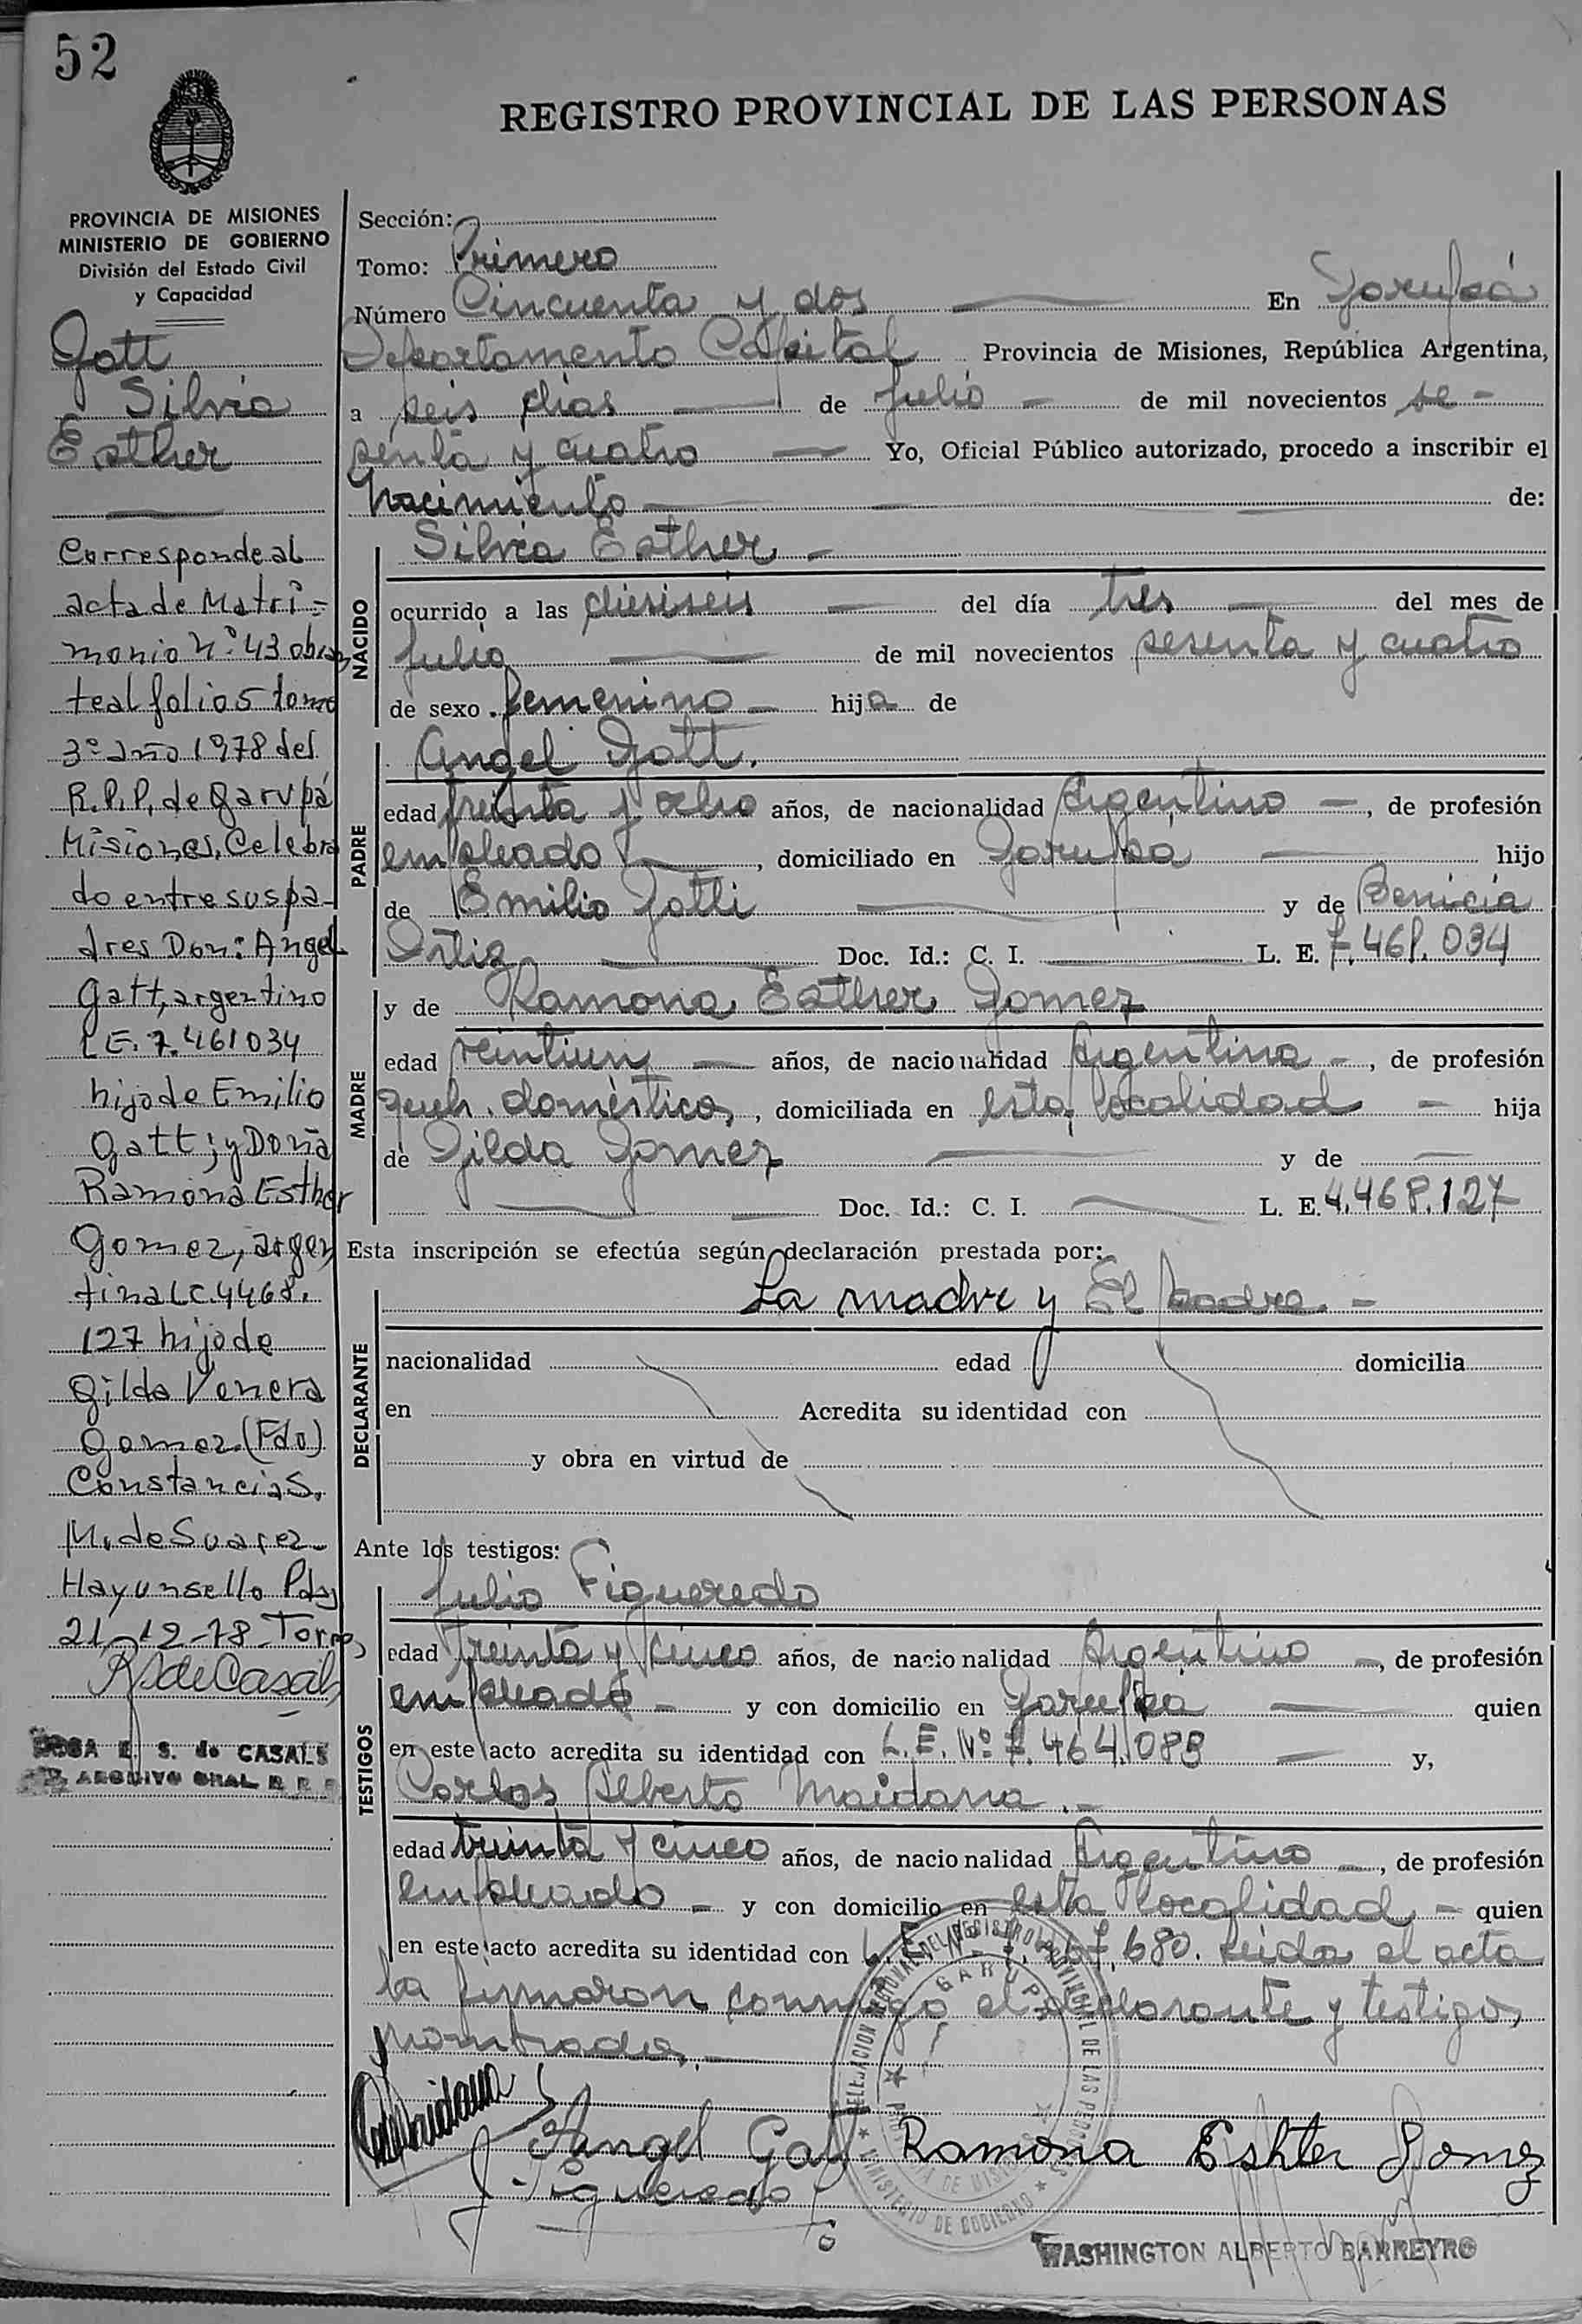 52
REGISTRO PROVINCIAL DE LAS PERSONAS
PROVINCIA DE MISIONES
MINISTERIO DE GOBIERNO
División del Estado Civil
y Capacidad
Gott
Silvia
Esther
Corresponde al
acta de Matri-
monio N° 43 obran
te al folio 5 tomo
3° año 1978 del
R.P.P. de Garupá
Misiones, Celebra
do entre sus pa-
dres Don: Angel
Gatt, argentino
L.E. 7.461034
hijo de Emilio
Gatt; y Doña
Ramona Esther
Gomez, argen
tina LC. 4468.
127 hijo de
Gilda Venera
Gomez. (Fdo)
Constancia S.
M. de Suarez
Hay un sello Pdas
21-12-78-Torres
R S de Casals
ROSA E. S. de CASALS
ARCHIVO GRAL R. P. P.
Sección:
Tomo: Primero
Número Cincuenta y dos En Garupá
Departamento Capital Provincia de Misiones, República Argentina,
a seis dias de Julio de mil novecientos se-
senta y cuatro Yo, Oficial Público autorizado, procedo a inscribir el
Nacimiento de:
NACIDO
Silvia Esther
ocurrido a las dieciseis del día tres del mes de
Julio de mil novecientos sesenta y cuatro
de sexo femenino hija de
PADRE
Angel Gott.
edad treinta y ocho años, de nacionalidad Argentino, de profesión
empleado, domiciliado en Garupá hijo
de Emilio Gotti y de Benicia
Ortiz Doc. Id.: C. I. L. E. 7.461.034
MADRE
y de Ramona Esther Gomez
edad veintiun años, de nacionalidad Argentina, de profesión
queh. domésticos, domiciliada en esta localidad hija
de Gilda Gomez y de
Doc. Id.: C. I. L. E. 4.468.127
Esta inscripción se efectúa según declaración prestada por:
DECLARANTE
La madre y El padre. -
nacionalidad edad domicilia
en Acredita su identidad con
y obra en virtud de
Ante los testigos:
TESTIGOS
Julio Figueredo
edad treinta y cinco años, de nacionalidad Argentino, de profesión
empleado y con domicilio en Garupá quien
en este acto acredita su identidad con L.E. N° 7.464.088 y,
Carlos Alberto Maidana. -
edad treinta y cinco años, de nacionalidad Argentino, de profesión
empleado y con domicilio en esta localidad quien
en este acto acredita su identidad con 680. leida el acta
la firmaron conmigo el declarante y testigos
nombrados.
Maidana
Angel Gatt Ramona Eshter Gomez
J. Figueredo
DELEGACION REGIONAL DEL REGISTRO PROVINCIAL DE LAS PERSONAS
GARUPA
MINISTERIO DE GOBIERNO
WASHINGTON ALBERTO BARREYRO